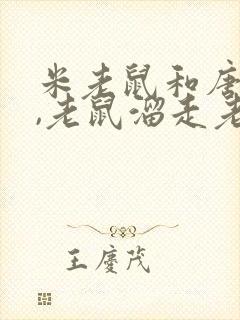 米老鼠和唐
,老鼠溜走老
王庆茂